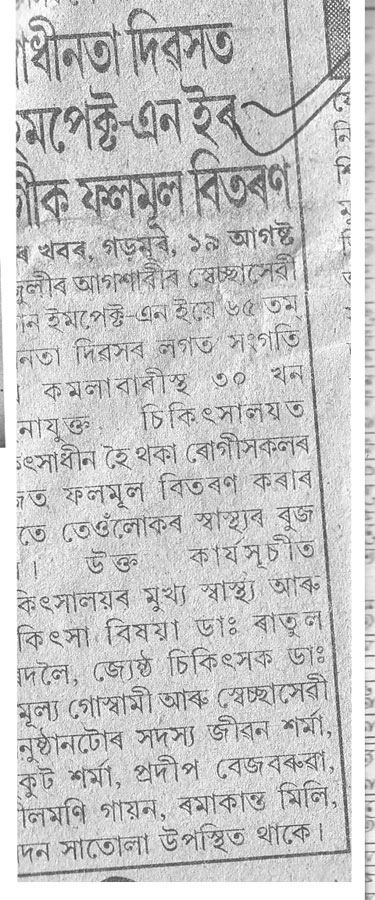 াধীনতা দিৱসত
মপেক্ট-এন ইৰ
গীক ফলমূল বিতৰণ
ৰ খবৰ, গড়মূৰ, ১৯ আগষ্ট
জুলীৰ আগশাৰীৰ স্বেচ্ছাসেৱী
ান ইমপেক্ট-এন ইয়ে ৬৫ তম্
নতা দিৱসৰ লগত সংগতি
কমলাবাৰীস্থ ৩০ খন
নাযুক্ত চিকিৎসালয়ত
ৎসাধীন হৈ থকা ৰোগীসকলৰ
জত ফলমূল বিতৰণ কৰাৰ
তে তেওঁলোকৰ স্বাস্থ্যৰ বুজ
। উক্ত কাৰ্যসূচীত
কিৎসালয়ৰ মুখ্য স্বাস্থ্য আৰু
কিৎসা বিষয়া ডাঃ ৰাতুল
ৰদলৈ, জ্যেষ্ঠ চিকিৎসক ডাঃ
মূল্য গোস্বামী আৰু স্বেচ্ছাসেৱী
নুষ্ঠানটোৰ সদস্য জীৱন শৰ্মা,
কুট শৰ্মা, প্ৰদীপ বেজবৰুৱা,
ীলমণি গায়ন, ৰমাকান্ত মিলি,
দন সাতোলা উপস্থিত থাকে।